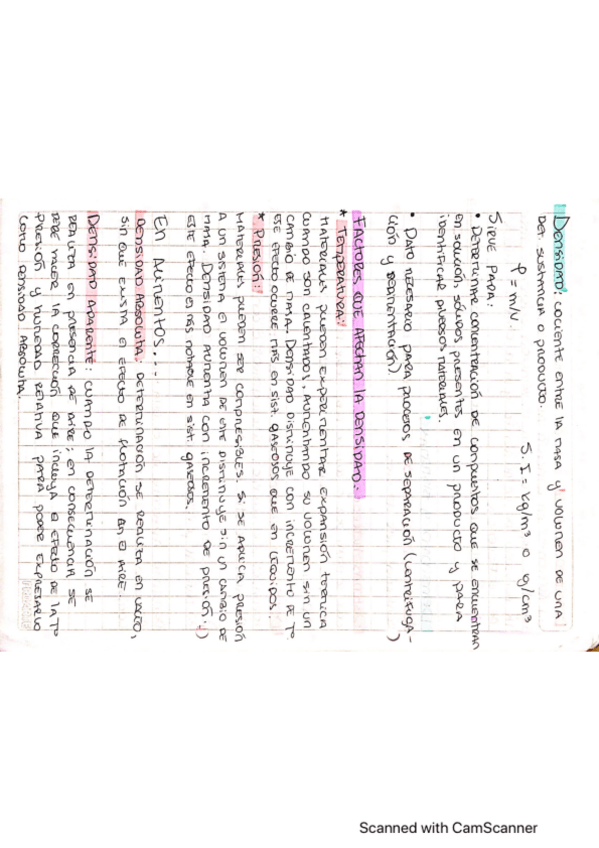 DENSIDAD: COCIENTE ENTRE LA MASA Y VOLUMEN DE UNA
DET. SUSTANCIA O PRODUCTO.
ρ = m/V. S.I = kg/m³ o g/cm³
SIRVE PARA:
• DETERMINAR CONCENTRACIÓN DE COMPUESTOS QUE SE ENCUENTRAN
EN SOLUCIÓN, SÓLIDOS PRESENTES EN UN PRODUCTO Y PARA
IDENTIFICAR DIVERSOS MATERIALES.
• DATO NECESARIO PARA PROCESOS DE SEPARACIÓN (CENTRIFUGA-
CIÓN Y SEDIMENTACIÓN)
FACTORES QUE AFECTAN LA DENSIDAD.
* TEMPERATURA:
MATERIALES PUEDEN EXPERIMENTAR EXPANSIÓN TÉRMICA
CUANDO SON CALENTADOS, AUMENTANDO SU VOLUMEN SIN UN
CAMBIO DE MASA. DENSIDAD DISMINUYE CON INCREMENTO DE T°
ESE EFECTO OCURRE MÁS EN SIST. GASEOSOS QUE EN LÍQUIDOS.
* PRESIÓN:
MATERIALES PUEDEN SER COMPRESIBLES. SI SE APLICA PRESIÓN
A UN SISTEMA EL VOLUMEN DE ESTE DISMINUYE SIN UN CAMBIO DE
MASA. DENSIDAD AUMENTA CON INCREMENTO DE PRESIÓN.
ESTE EFECTO ES MÁS NOTABLE EN SIST. GASEOSOS.
EN ALIMENTOS...
DENSIDAD ABSOLUTA: DETERMINACIÓN SE REALIZA EN VACÍO,
SIN QUE EXISTA EL EFECTO DE FLOTACIÓN EN EL AIRE
DENSIDAD APARENTE: CUANDO LA DETERMINACIÓN SE
REALIZA EN PRESENCIA DE AIRE; EN CONSECUENCIA SE
DEBE HACER LA CORRECCIÓN QUE INCLUYA EL EFECTO DE LA T°
PRESIÓN Y HUMEDAD RELATIVA PARA PODER EXPRESARLO
COMO DENSIDAD ABSOLUTA.
Scanned with CamScanner